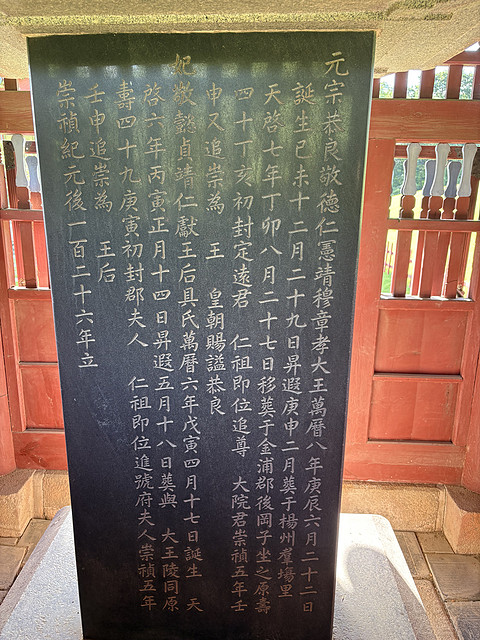 元宗恭良敬德仁憲靖穆章孝大王萬曆八年庚辰六月二十二日
誕生己未十二月二十九日昇遐庚申二月葬于楊州羣場里
天啓七年丁卯八月二十七日移葬于金浦郡後岡子坐之原壽
四十丁亥初封定遠君 仁祖即位追尊 大院君崇禎五年壬
申又追崇為 王 皇朝賜謚恭良
妃敬懿貞靖仁獻王后具氏萬曆六年戊寅四月十七日誕生 天
啓六年丙寅正月十四日昇遐五月十八日葬與 大王陵同原
壽四十九庚寅初封郡夫人 仁祖即位進號府夫人崇禎五年
壬申追崇為 王后
崇禎紀元後一百二十六年立